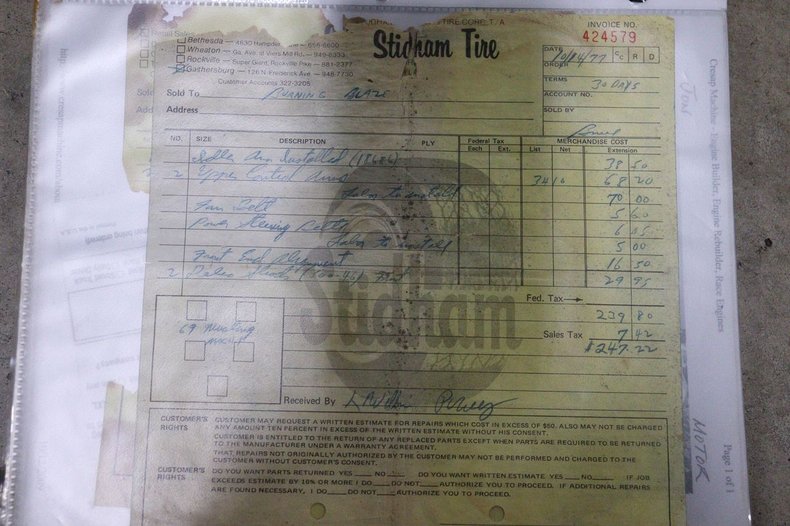 TIRE CORP. T. A.
INVOICE NO.
424579
Stidham Tire
Bethesda - 4930 Hampden - 656-6600
Wheaton - Ga. Ave. at Viers Mill Rd. - 949-8333
Rockville - Super Giant, Rockville Pike - 881-2377
Gaithersburg - 126 N. Frederick Ave. - 948-7730
Customer Accounts 327-3205
DATE 10/14/77 Cc R D
ORDER
TERMS 30 DAYS
ACCOUNT NO.
SOLD BY
Sold To BURNING BLAZE
Address
NO. SIZE DESCRIPTION PLY Federal Tax MERCHANDISE COST
Each Ext. List Net Extension
Idler Arm Installed 38 50
2 Upper Control Arms 3410 68 20
Labor to install 70 00
Fan Belt 5 60
Power Steering Belt 6 05
Labor to install 5 00
Front End Alignment 16 50
2 29 95
Stidham
Fed. Tax
239 80
Sales Tax 7 42
$247.22
69 Mustang
Received By
CUSTOMER'S RIGHTS
CUSTOMER MAY REQUEST A WRITTEN ESTIMATE FOR REPAIRS WHICH COST IN EXCESS OF $50, ALSO MAY NOT BE CHARGED
ANY AMOUNT TEN PERCENT IN EXCESS OF THE WRITTEN ESTIMATE WITHOUT HIS CONSENT.
CUSTOMER IS ENTITLED TO THE RETURN OF ANY REPLACED PARTS EXCEPT WHEN PARTS ARE REQUIRED TO BE RETURNED
TO THE MANUFACTURER UNDER A WARRANTY AGREEMENT.
THAT REPAIRS NOT ORIGINALLY AUTHORIZED BY THE CUSTOMER MAY NOT BE PERFORMED AND CHARGED TO THE
CUSTOMER WITHOUT CUSTOMER'S CONSENT.
CUSTOMER'S RIGHTS
DO YOU WANT PARTS RETURNED YES NO DO YOU WANT WRITTEN ESTIMATE YES NO IF JOB
EXCEEDS ESTIMATE BY 10% OR MORE I DO DO NOT AUTHORIZE YOU TO PROCEED. IF ADDITIONAL REPAIRS
ARE FOUND NECESSARY, I DO DO NOT AUTHORIZE YOU TO PROCEED.
Crossp Machine - Engine Builder, Engine Rebuilder, Race Engines
Page 1 of 1
JON
MOTOR